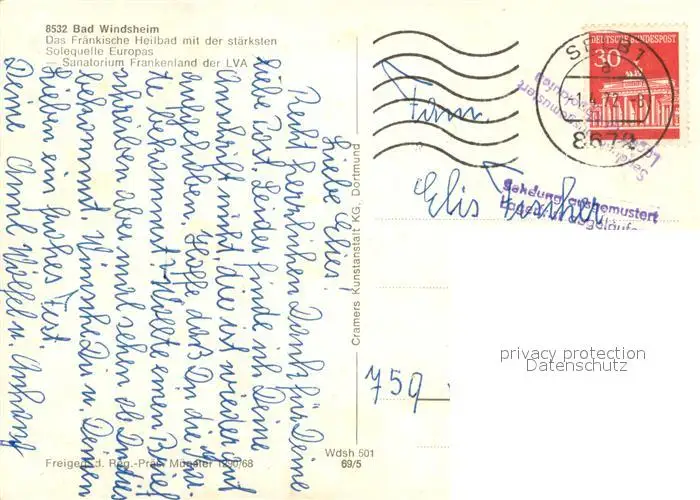 8532 Bad Windsheim
Das Fränkische Heilbad mit der stärksten
Solequelle Europas
— Sanatorium Frankenland der LVA
Liebe Elis!
Recht herzlichen Dank für Deine
liebe Post. Leider finde ich Deine
Anschrift nicht, die ist wieder gut
aufgehoben. Hoffe daß Du die
te bekommst. Wollte einen Brief
schreiben aber mal sehen ob Du dies
bekommst. Wünsche Du u. Deinen
Lieben ein frohes Fest.
Deine u. Anhang
Freigeg. d. Reg.-Präs. Münster 1290/68
Cramers Kunstanstalt KG, Dortmund
Wdsh 501
69/5
DEUTSCHE BUNDESPOST
30
a
8672
Fam.
Elis Fischer
Sendung ausgemustert
759
privacy protection
Datenschutz